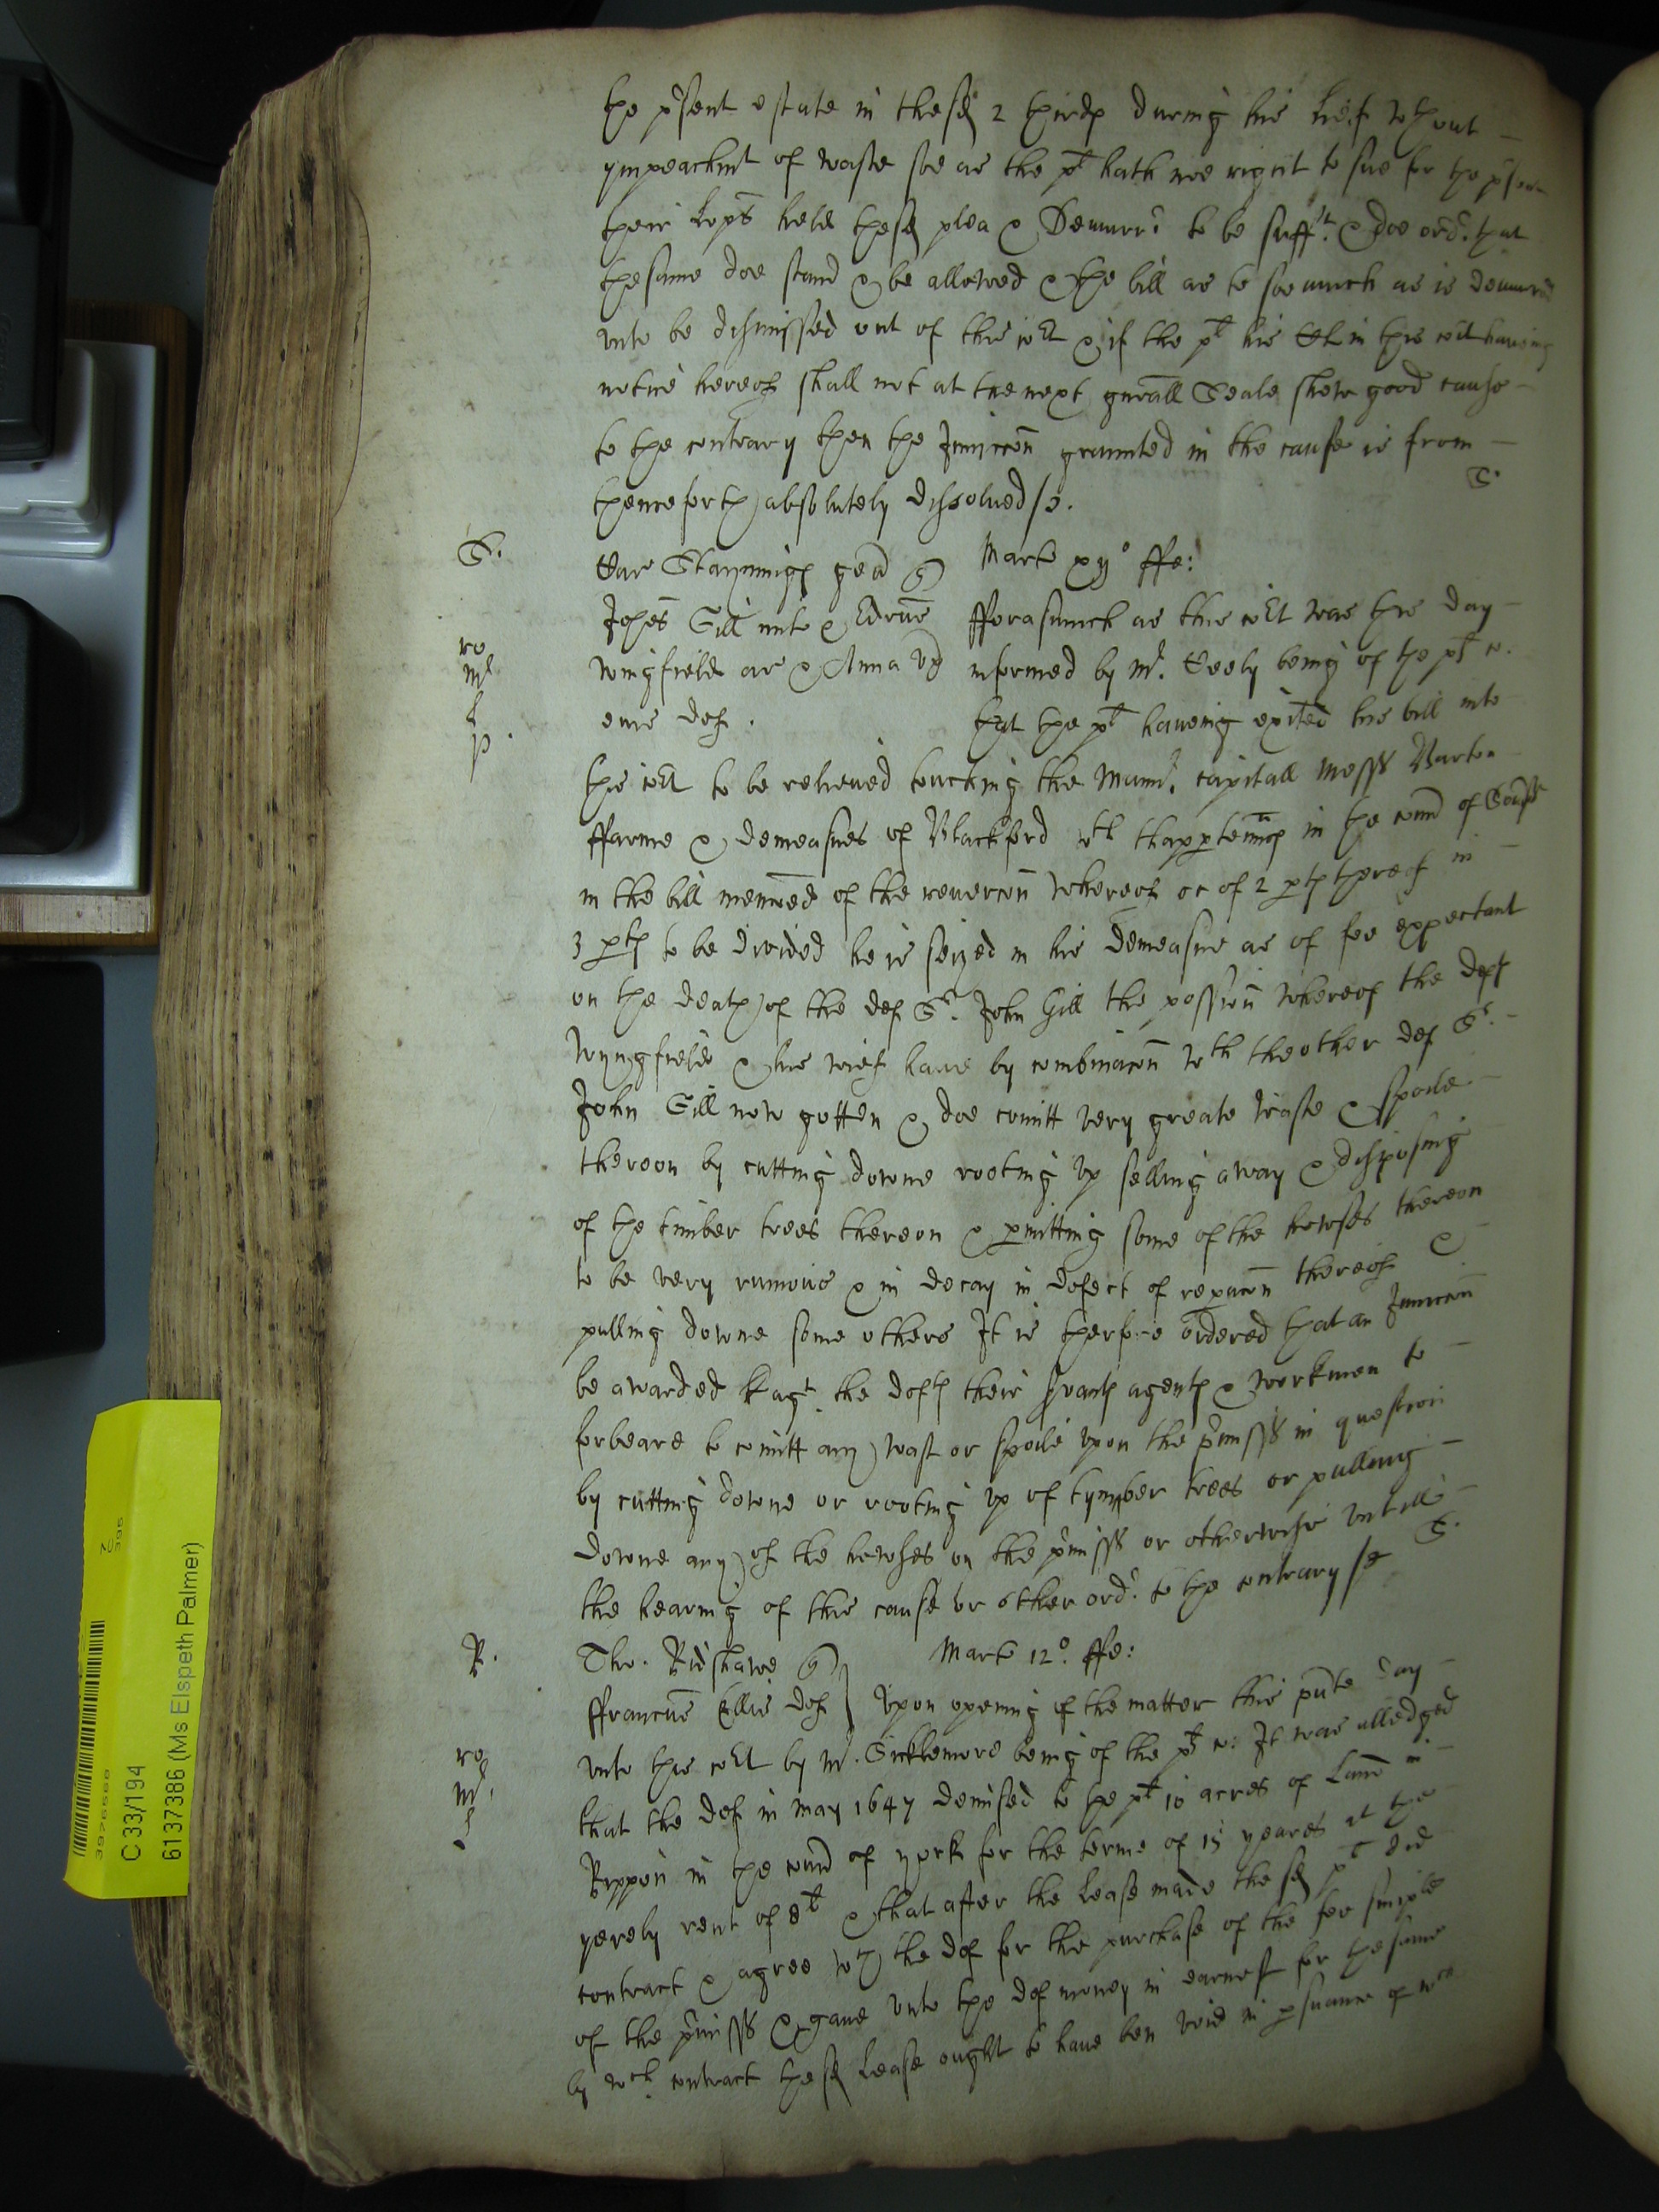 the p'sent estate in the sd 2 thirds during his lief wthout
ympeachmt of waste soe as the plt hath noe right to sue for the p'sent
their Lopps held the sd plea & Demurrr to be sufft & doe ordr that
the same doe stand & be allowed & the bill as to soe much as is demurrd
vnto be dismissed out of this cort & if the plt his Clk in this cort haveing
notice hereof shall not at the next gnrall Seale shew good cause
to the contrary then the Iniuccon graunted in the cause is from
thenceforth absolutely dissolued /
S.
Mart xijo ffe:
S.
Johes Gill miles & Edrus
fforasmuch as this cort was this day
ro
Wingfield ar & Anna vx
informed by Mr. being of the plts c.
eius def.
that the plt haueing exited his bill into
this cort to be releived touching the Mannr. capitall Messs Barton
ffarme & demeasnes of Blackford wth thappertenncs in the count of Somst
in the bill menconed of the revercon whereof or of 2 pts thereof in
3 pts to be divided he is seized in his demeasne as of fee expectant
on the death of the def Sr. John Gill the possion whereof the defts
Wyngfield & his wief haue by combinacon wth the other def Sr.
John Gill now gotten & doe comitt very greate Waste & spoile
thereon by cutting downe rooting vp selling away & disposing
of the timber trees thereon & pmitting some of the howses thereon
to be very ruinous & in decay in defect of repacon thereof &
pulling downe some others It is therfore ordered that an Iniuccon
be awarded agt. the defts their servants agents & workmen to
forbeare to comitt any wast or spoile vpon the p'misss in question
by cutting downe or rooting vp of tymber trees or pulling
downe any of the howses on the p'misss or otherwise vntill
the hearing of this cause or other ordr. to the contrary /
S.
R.
Tho. Ridshawe
Mart 12o. ffe:
ffrancus Ellis def
Vpon opening of the matter this pnte day
ro
vnto this cort by Mr. Sicklemore being of the plts c: It was alledged
that the def in May 1647 demised to the plt 10 acres of Land in
Rippon in the count of york for the terme of 15 yeares at the
yerely rent of 8l & that after the Lease made the sd plt did
contract & agree wth the def for the purchase of the fee simple
of the p'misss & gaue vnto the def money in earnest for the same
by wch. contract the sd Lease ought to haue ben void in psuance of wch
3976568
C 33/194
6137386 (Ms Elspeth Palmer)